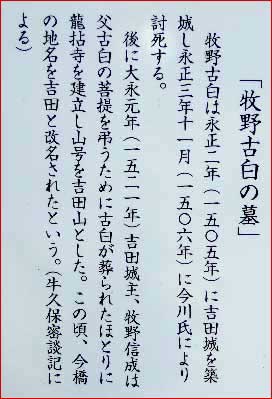 「牧野古白の墓」
牧野古白は永正二年(一五〇五年)に吉田城を築
城し永正三年十一月(一五〇六年)に今川氏により
討死する。
後に大永元年(一五二一年)吉田城主、牧野信成は
父古白の菩提を弔うために古白が葬られたほとりに
龍拈寺を建立し山号を吉田山とした。この頃、今橋
の地名を吉田と改名されたという。(牛久保密談記に
よる)